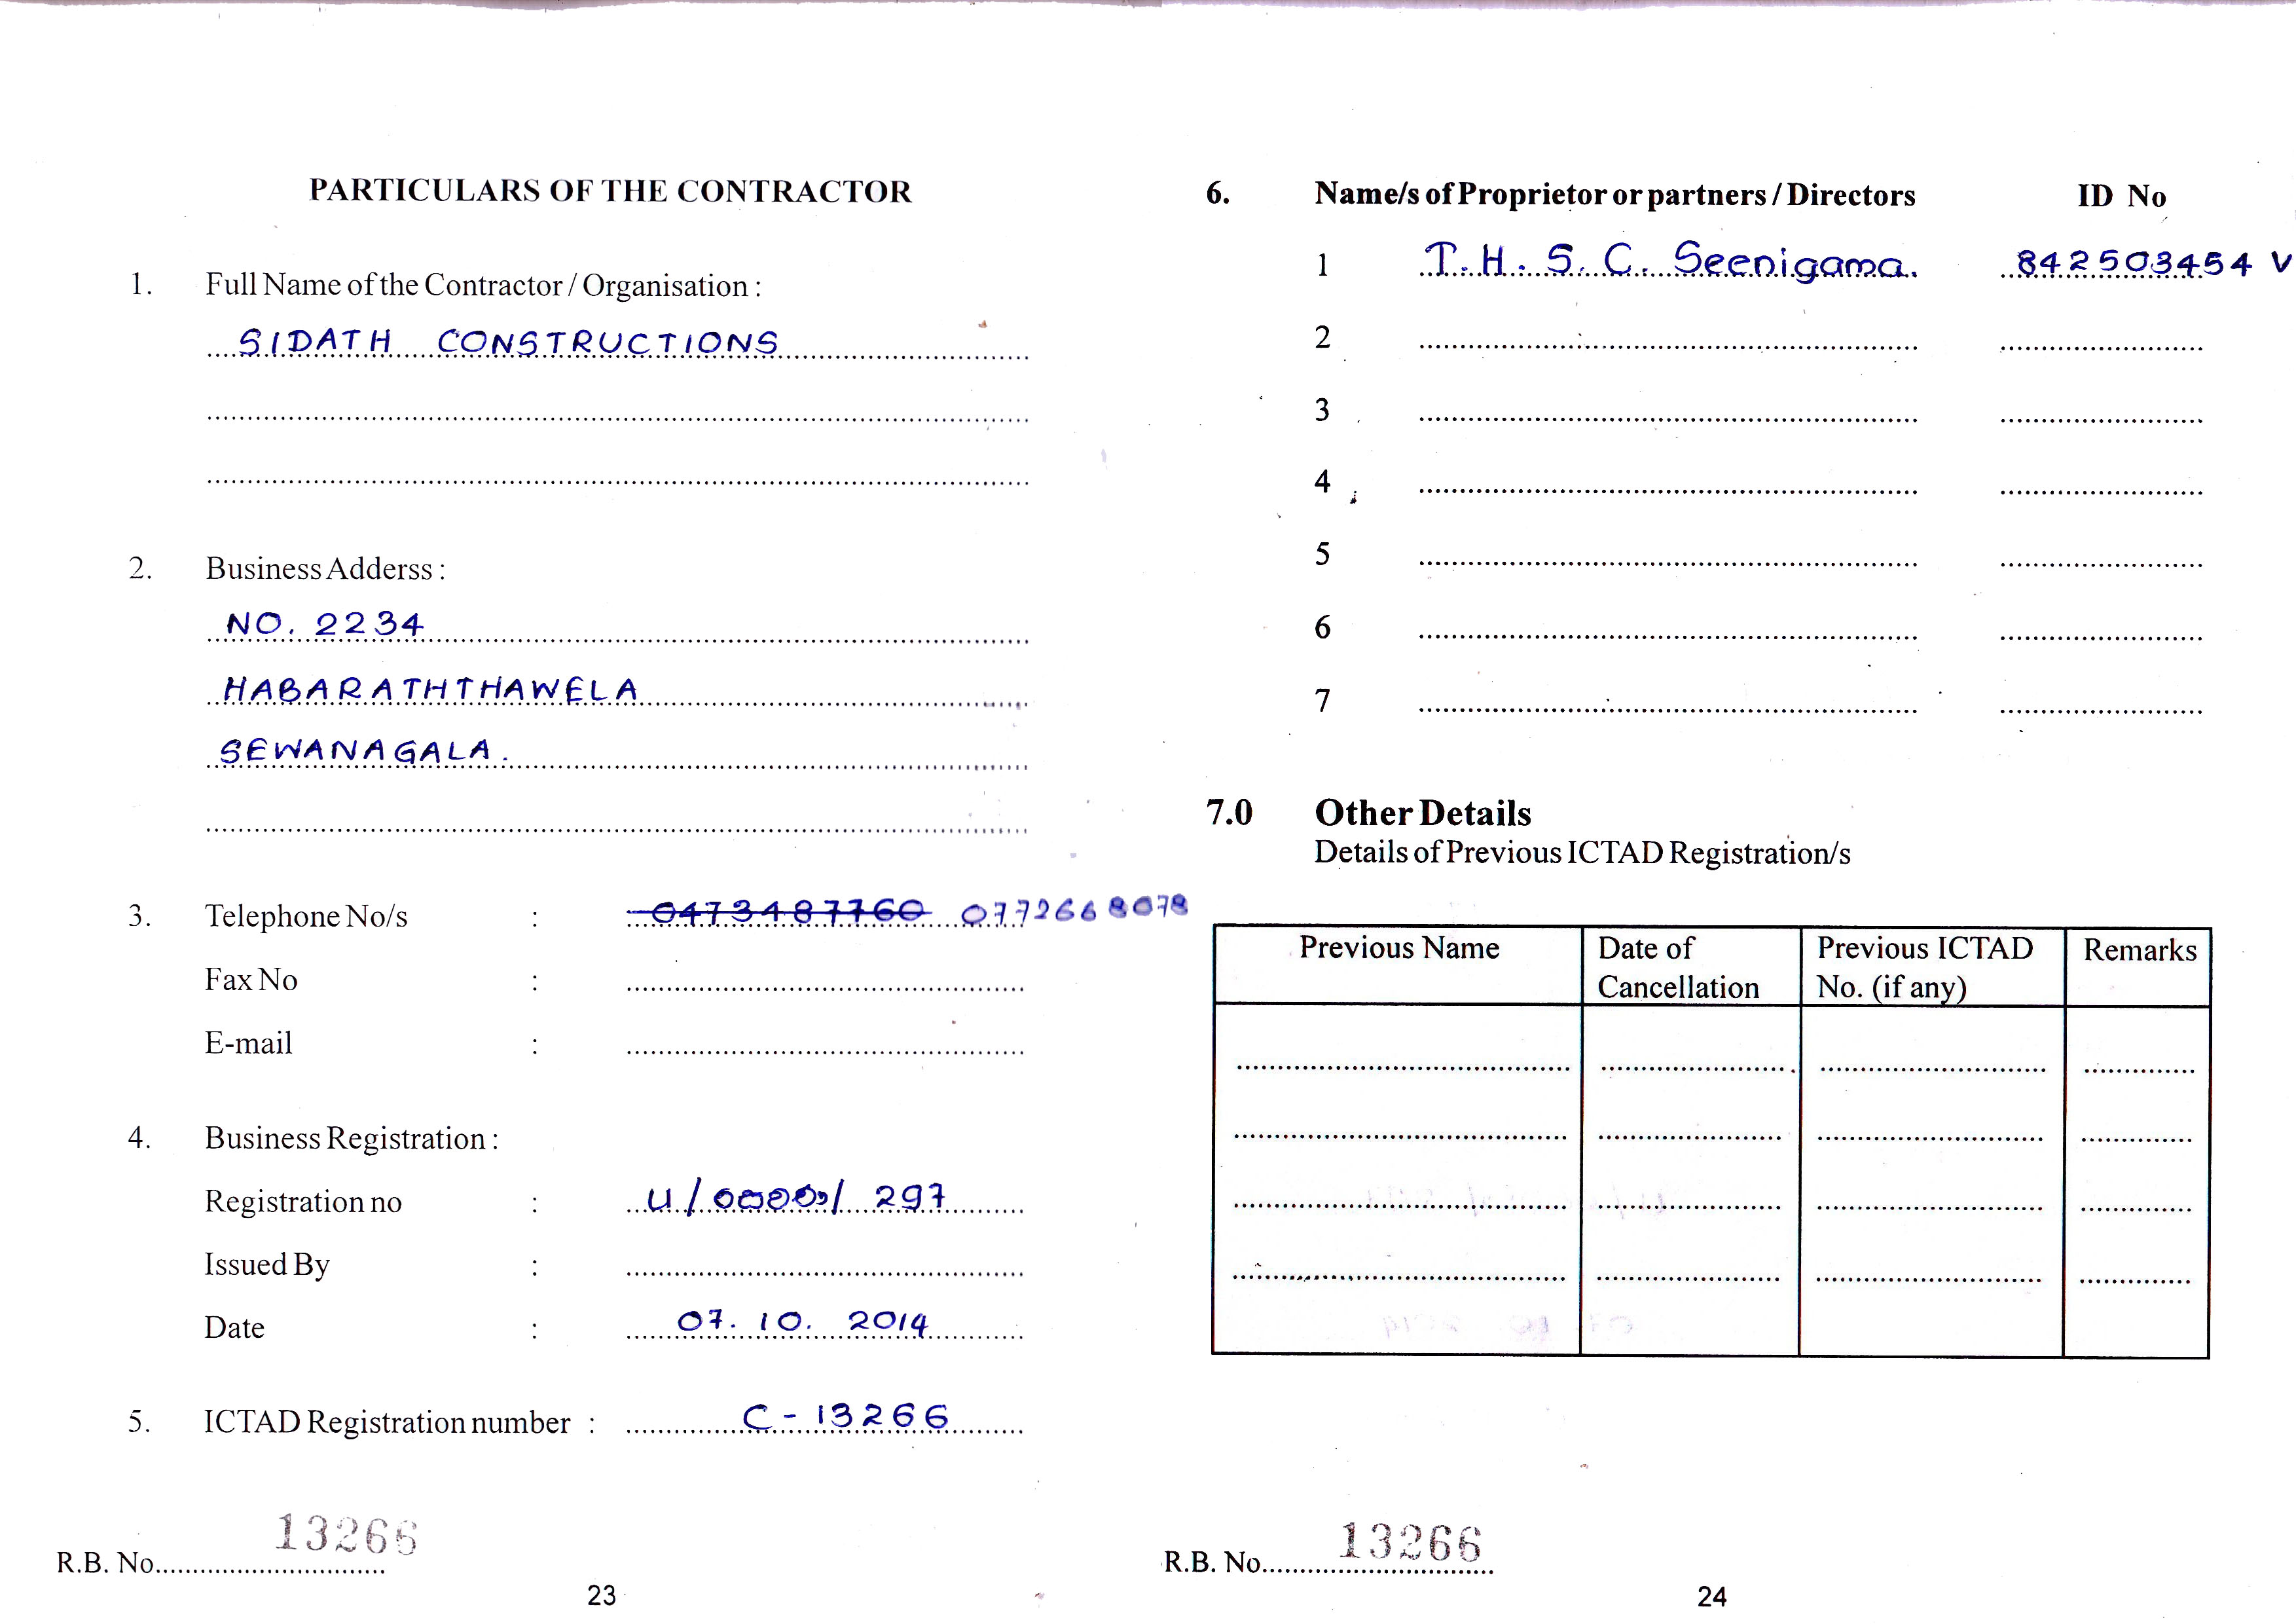 PARTICULARS OF THE CONTRACTOR
1. Full Name of the Contractor / Organisation :
SIDATH CONSTRUCTIONS
2. Business Adderss :
NO. 2234
HABARATHTHAWELA
SEWANAGALA.
3. Telephone No/s : 0473487760 0772668078
Fax No :
E-mail :
4. Business Registration :
Registration no : U/ / 297
Issued By :
Date : 07. 10. 2014
5. ICTAD Registration number : C - 13266
R.B. No. 13266
23
6. Name/s of Proprietor or partners / Directors ID No
1 T. H. S. C. Seenigama. 842503454 V
2
3
4
5
6
7
7.0 Other Details
Details of Previous ICTAD Registration/s
Previous Name Date of Cancellation Previous ICTAD No. (if any) Remarks
R.B. No. 13266
24